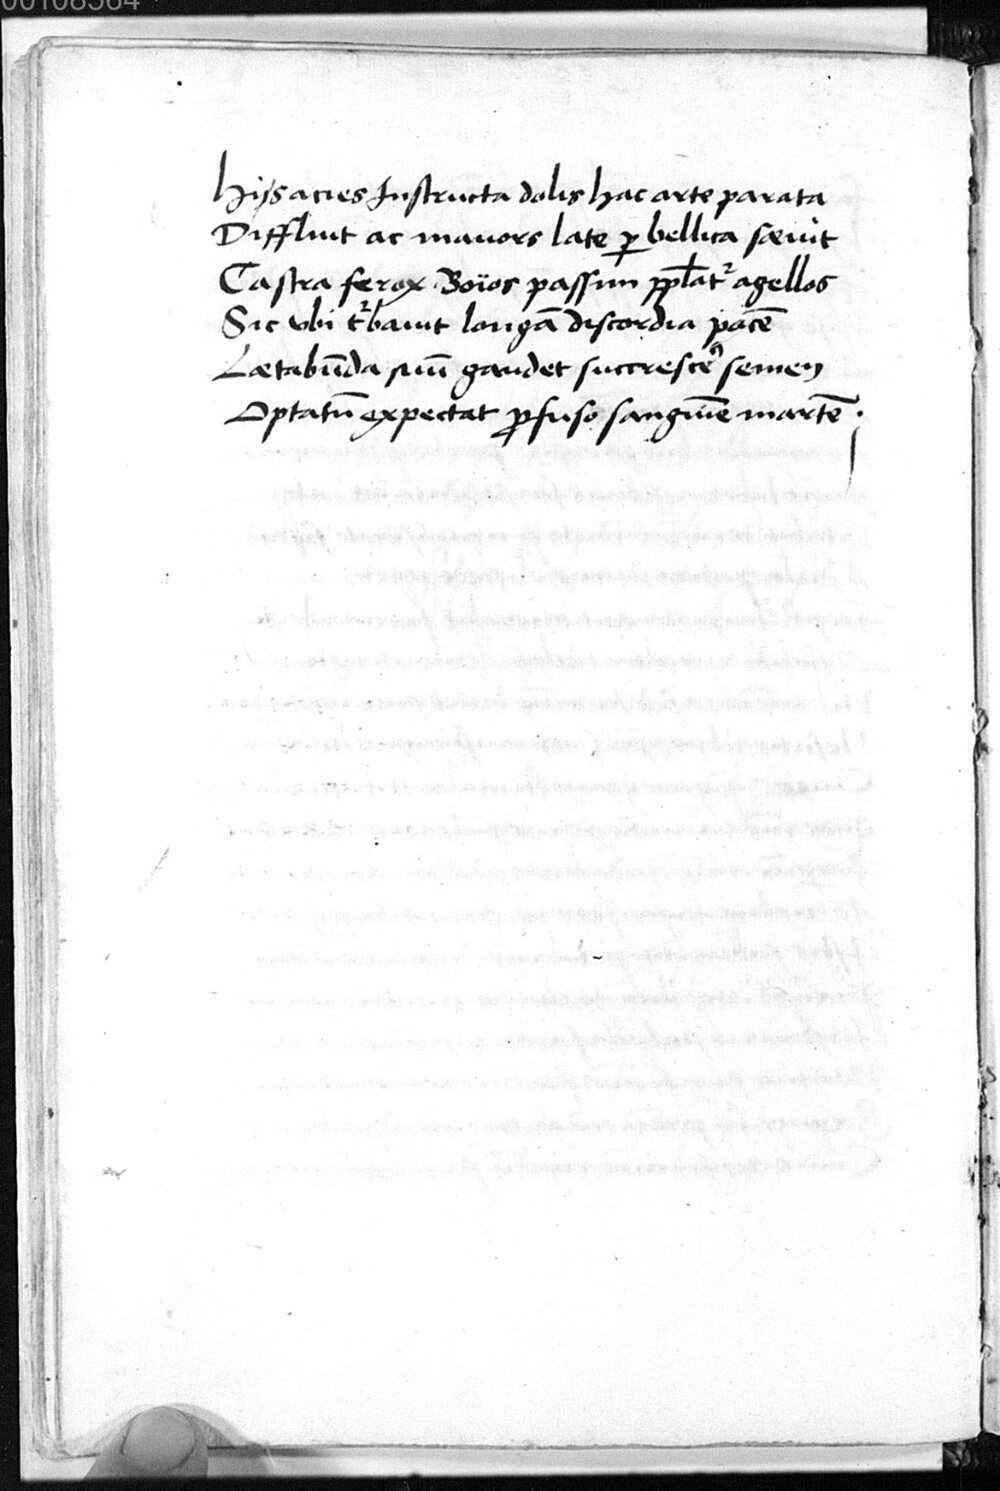 00108564
Hijs acies Instructa dolis hac arte parata
Diffluit ac mauors late ꝑ bellica sæuit
Castra ferox Boïos passim pplat² agellos
Sic vbi t²bauit longā discordia pacē
Lætabūda suū gaudet succrescē⁹ semen
Optatū expectat ꝓfuso sanguīe martē .